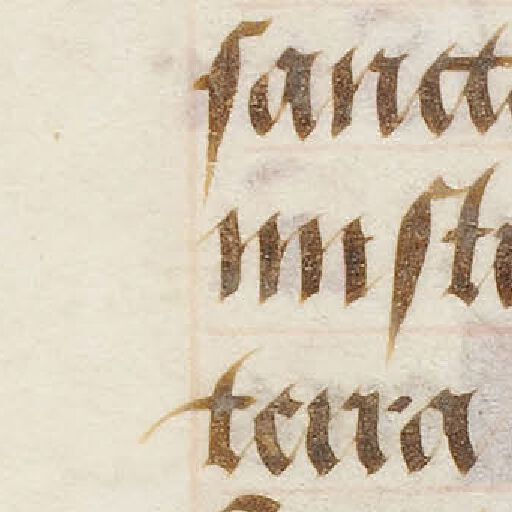 sanct
nist
terra